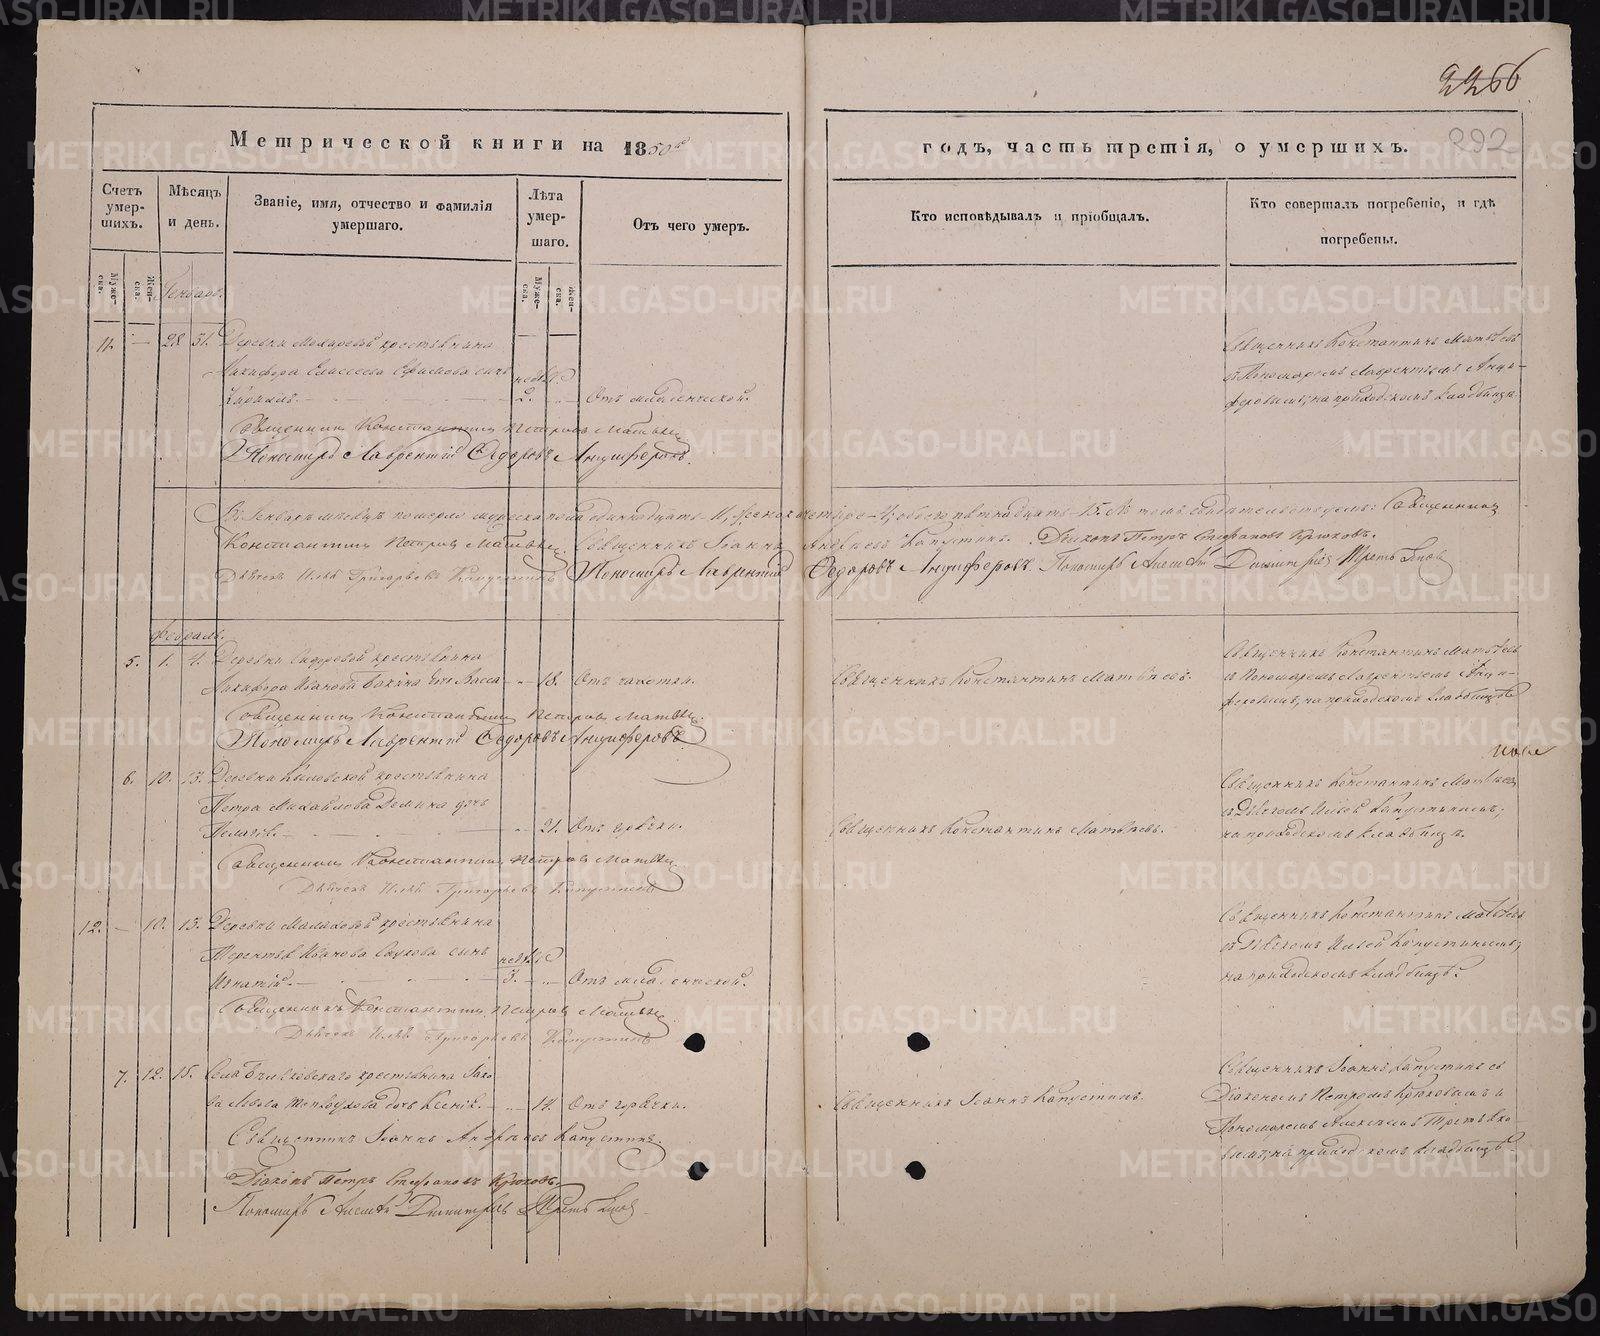 2266
292
Метрической книги на 1850й
годъ, часть третія, о умершихъ.
Счетъ умер-шихъ.
Мѣсяцъ и день.
Званіе, имя, отчество и фамилія умершаго.
Лѣта умер-шаго.
Отъ чего умеръ.
Кто исповѣдывалъ и пріобщалъ.
Кто совершалъ погребеніе, и гдѣ погребены.
Муже-ска.
Жен-ска.
Муже-ска.
Жен-ска.
Генварь.
11. — 28 31. Деревни крестьянина
Никифора Елисеева Ефимова сынъ недѣл.
2. Отъ младенческой.
Священникъ Константинъ Матвѣевъ
съ Пономаремъ Лаврентіемъ Анци-
феровымъ; на приходскомъ кладбищѣ.
Священникъ Константинъ Петровъ Матвѣевъ
Пономарь Лаврентій Ѳедоровъ Анциферовъ.
Въ Генварѣ мѣсяцѣ померло мужеска пола одиннадцать – 11, женска четыре – 4, обоего пятнадцать – 15. Въ томъ свидѣтельствуемъ: Священникъ
Константинъ Петровъ Матвѣевъ. Священникъ Іоаннъ Андреевъ Капустинъ. Діаконъ Петръ Стефановъ Крюковъ.
Дьячекъ Илья Григорьевъ Капустинъ Пономарь Лаврентій Ѳедоровъ Анциферовъ. Пономарь Алексѣй Димитріевъ Третьяковъ
Февраль.
5. 1. 4. Деревни Сидоровой крестьянина
Никифора Иванова дочь Васса 18. Отъ чахотки.
Священникъ Константинъ Матвѣевъ.
Священникъ Константинъ Матвѣевъ
съ Пономаремъ Лаврентіемъ Анци-
феровымъ; на приходскомъ кладбищѣ
Священникъ Константинъ Петровъ Матвѣевъ.
Пономарь Лаврентій Ѳедоровъ Анциферовъ.
6. 10. 13. Деревни крестьянина
Петра Михайлова Демина дочь
Пелагія. 21. Отъ горячки.
Священникъ Константинъ Матвѣевъ.
Священникъ Константинъ Матвѣевъ
съ Дьячкомъ Ильею Капустинымъ;
на приходскомъ кладбищѣ.
Священникъ Константинъ Петровъ Матвѣевъ
Дьячекъ Илья Григорьевъ Капустинъ
12. — 10. 13. Деревни крестьянина
Терентья Иванова сынъ недѣл.
Игнатій. 3. Отъ младенческой.
Священникъ Константинъ Матвѣевъ
съ Дьячкомъ Ильею Капустинымъ;
на приходскомъ кладбищѣ.
Священникъ Константинъ Петровъ Матвѣевъ
Дьячекъ Илья Григорьевъ Капустинъ
7. 12. 15. Села крестьянина
Львова дочь Ксенія. 14. Отъ горячки.
Священникъ Іоаннъ Капустинъ.
Священникъ Іоаннъ Капустинъ съ
Діакономъ Петромъ Крюковымъ и
Пономаремъ Алексѣемъ Третьяко-
вымъ; на приходскомъ кладбищѣ.
Священникъ Іоаннъ Андреевъ Капустинъ.
Діаконъ Петръ Стефановъ Крюковъ.
Пономарь Алексѣй Димитріевъ Третьяковъ
METRIKI.GASO-URAL.RU